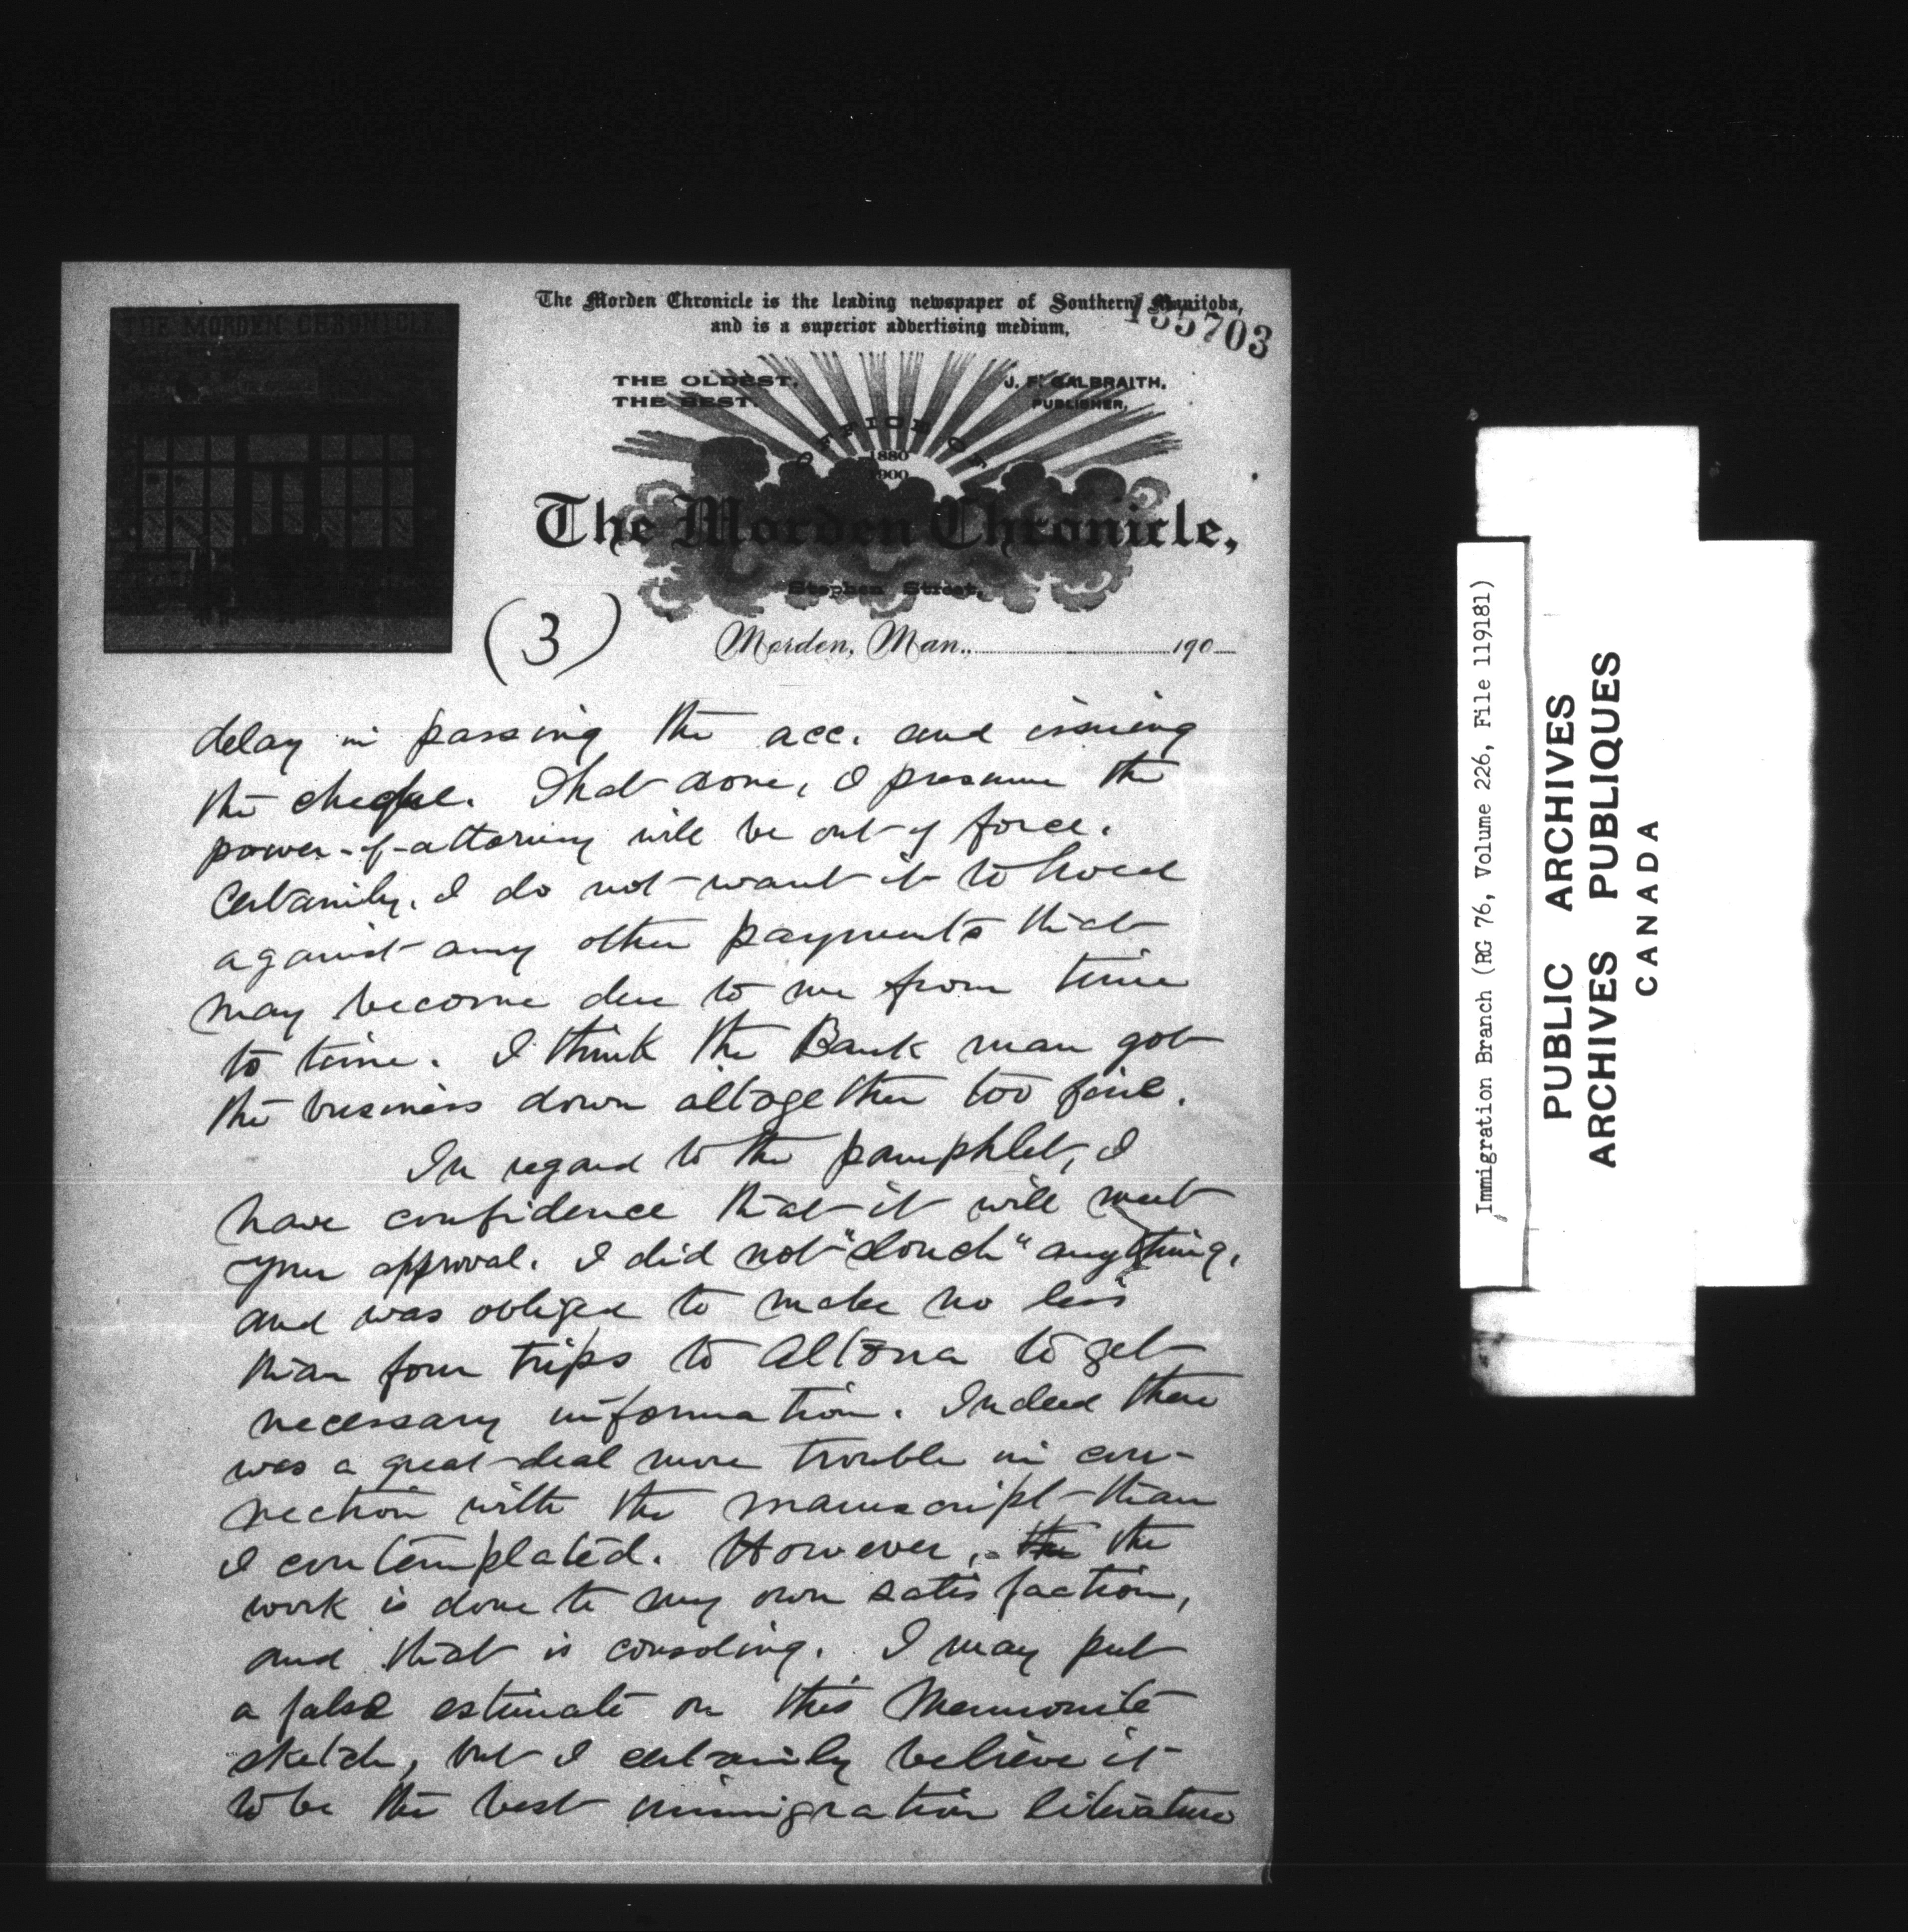 The Morden Chronicle is the leading newspaper of Southern Manitoba,
and is a superior advertising medium,
135703
THE MORDEN CHRONICLE.
THE OLDEST.
THE BEST.
J. F. GALBRAITH,
PUBLISHER,
OFFICE OF
1880
1900
The Morden Chronicle,
Stephen Street,
(3)
Morden, Man., 190
delay in passing the acc. and issuing
the cheque. That done, I presume the
power-of-attorney will be out of force.
Certainly, I do not want it to hold
against any other payments that
may become due to me from time
to time. I think the Bank man got
the business down altogether too fine.
In regard to the pamphlet, I
have confidence that it will meet
your approval. I did not "slouch" anything,
and was obliged to make no less
than four trips to Altona to get
necessary information. Indeed there
was a great deal more trouble in con-
nection with the manuscript than
I contemplated. However, the the
work is done to my own satisfaction,
and that is consoling. I may put
a false estimate on this Mennonite
sketch, but I certainly believe it
to be the best immigration literature
Immigration Branch (RG 76, Volume 226, File 119181)
PUBLIC ARCHIVES
ARCHIVES PUBLIQUES
CANADA